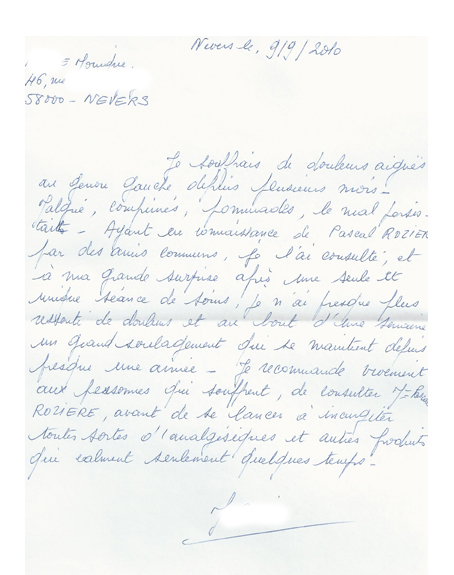 Nevers le, 9/9/2010
Monique.
46, rue
58000 - NEVERS
Je souffrais de douleurs aigues
au genou gauche depuis plusieurs mois -
Malgré, comprimés, pommades, le mal persis-
tait - Ayant eu connaissance de Pascal ROZIER
par des amis communs, je l'ai consulté, et
à ma grande surprise après une seule et
unique séance de soins, je n'ai presque plus
ressenti de douleurs et au bout d'une semaine
un grand soulagement qui se maintient depuis
presque une année - Je recommande vivement
aux personnes qui souffrent, de consulter
ROZIERE, avant de se lancer à ingurgiter
toutes sortes d'analgésiques et autres produits
qui calment seulement quelques temps -